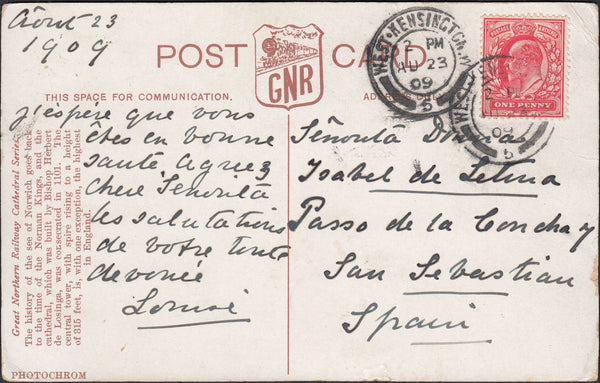 Août 23
1909
POST CARD
GNR
THIS SPACE FOR COMMUNICATION.
j'espère que vous
êtes en bonne
santé agreez
chere Senorita
les salutations
de votre toute
devouée
Louise
Señorita
Isabel de
Passo de la Concha 7
San Sebastian
Spain
WEST KENSINGTON
PM
AU 23
09
5
ONE PENNY
09
5
Great Northern Railway Cathedral Series.
The history of the see of Norwich goes back
to the time of the Norman Kings, and the
cathedral, which was built by Bishop Herbert
de Losinga, was consecrated in 1101. The
central tower, with spire rising to a height
of 315 feet, is, with one exception, the highest
in England.
PHOTOCHROM